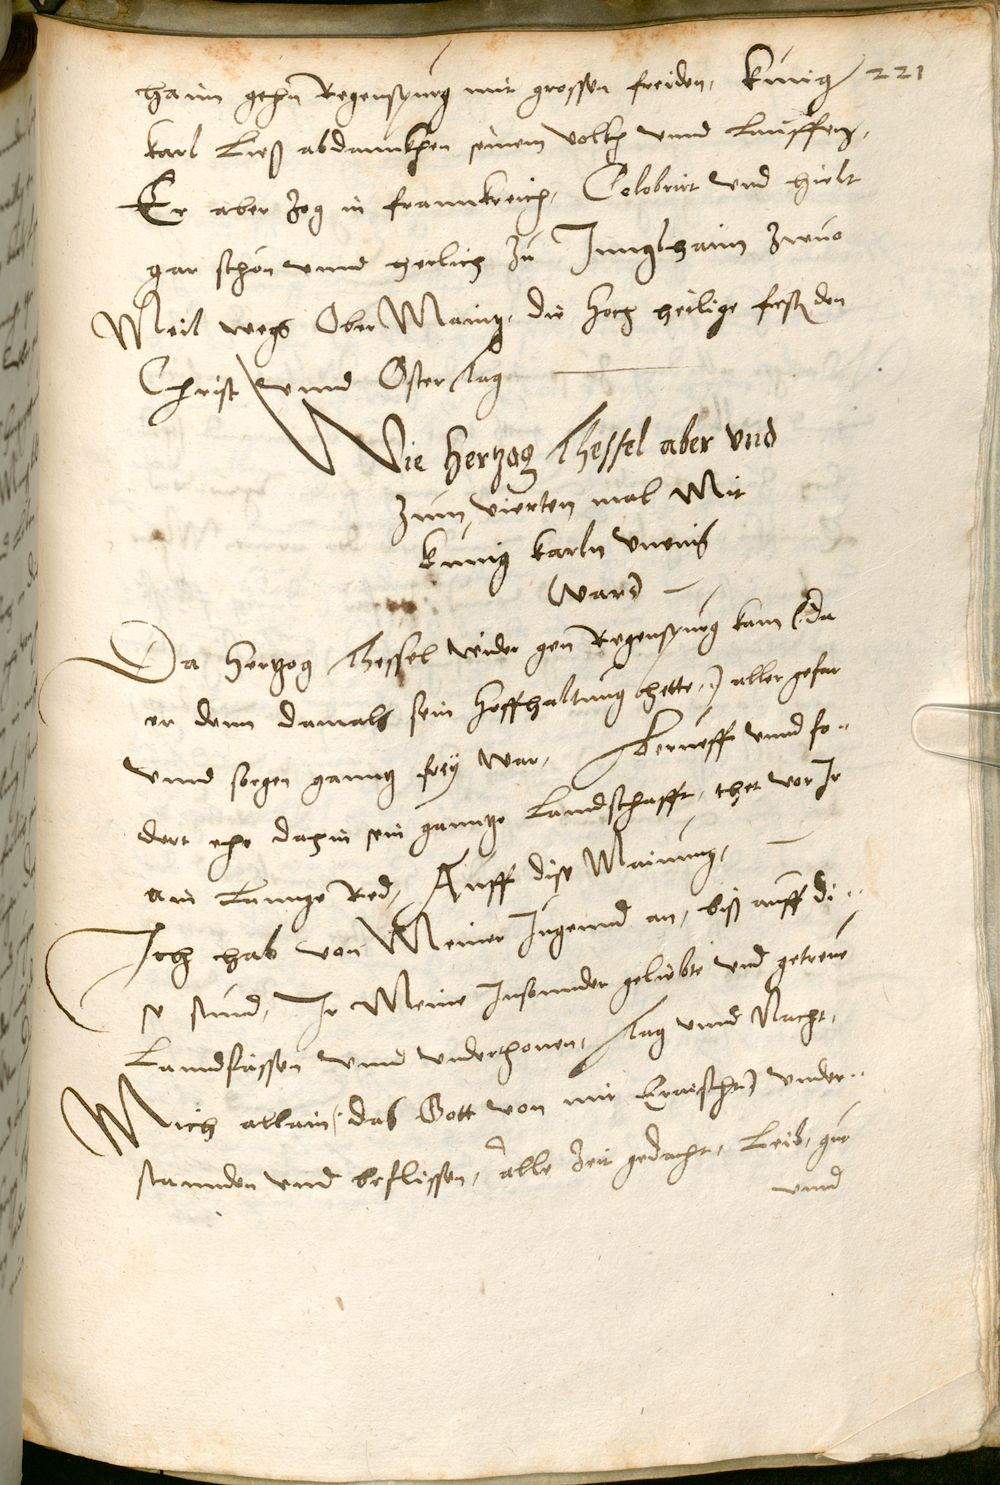 haim gehn Regenspurg mit grossen freiden, Künig 221
karl Ließ abdannkhen seinem volkh vnnd Lauffen,
Er aber zog in frannkreich, Celebrirt vnd hielt
gar schön vnnd herlich zu Innglhaim zwuo
Meil wegs Ober Maintz, die hoch heilige fest den
Christ vnnd Oster tag
Wie hertzog Thessel aber vnd
zum vierten mal Mit
künig karln vneinß
ward
Da hertzog Thessel wider gen Regenspurg kam (da
er denn damals sein hoffhaltung hette,) aller gefar
vnnd sorgen ganntz frey war, berueff vnnd fo-
dert ehe dahin sein ganntze Landschafft, thet vor Ir
ain Lannge Red, Auff dise Mainung,
Ich hab von Meiner Jugennd an, biß auff di-
se stund, Ir Meine Insonnder geliebte vnd getreue
Lanndsässen vnnd vnderthonen, Tag vnnd Nacht,
Mich allain (das Gott von mir Eraischt) vnder-
stannden vnd beflissen, alle Zeit gedacht, Leib, gut
vnnd